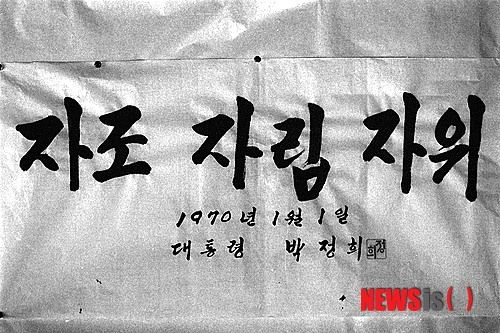 자조 자립 자위
1970년 1월 1일
대통령 박정희
NEWSis( )